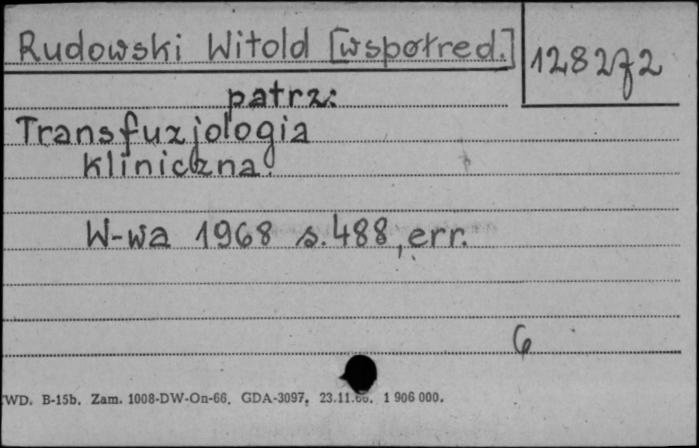 Rudowski Witold [współred.]
128272
patrz:
Transfuzjologia
kliniczna.
W-wa 1968 s. 488, err.
6
WD. B-15b. Zam. 1008-DW-On-66. GDA-3097. 23.11.66. 1 906 000.